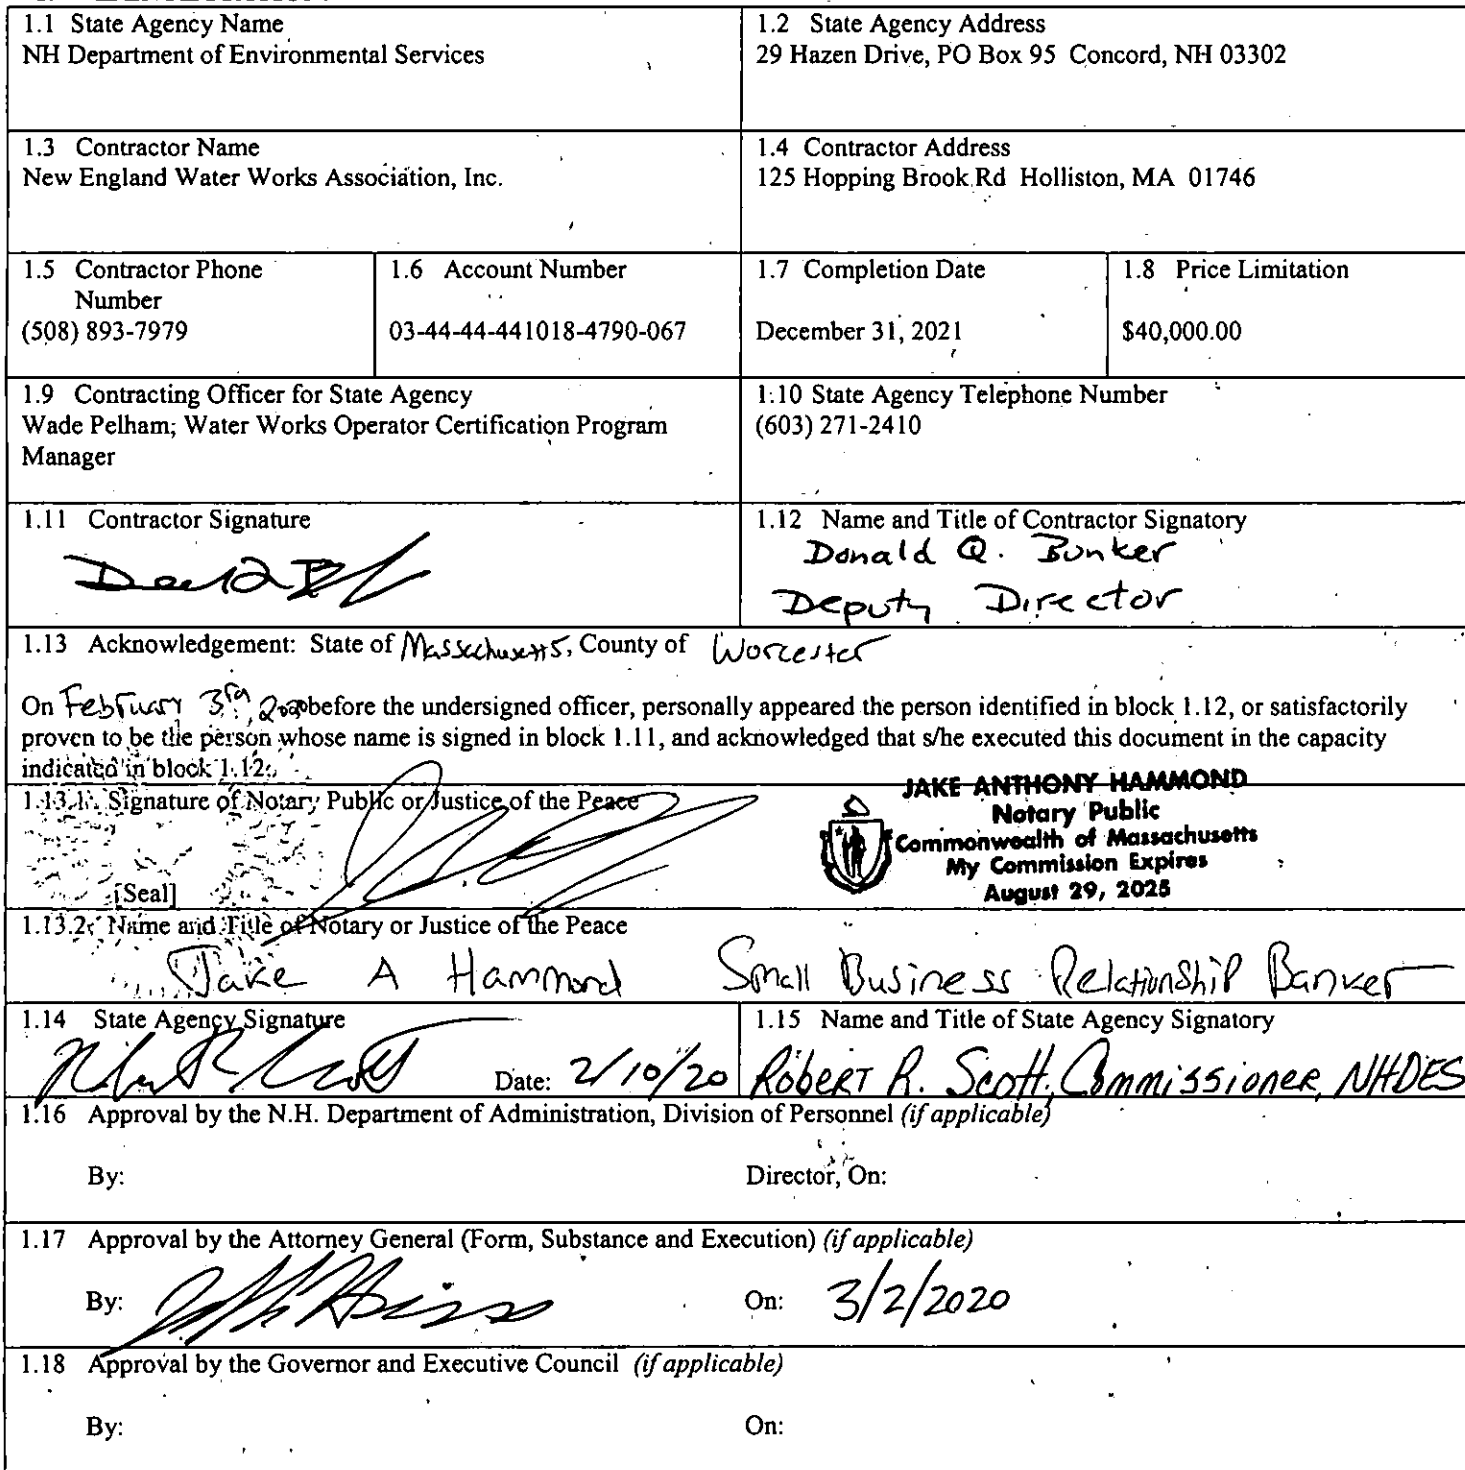 1.1 State Agency Name
NH Department of Environmental Services
1.2 State Agency Address
29 Hazen Drive, PO Box 95 Concord, NH 03302
1.3 Contractor Name
New England Water Works Association, Inc.
1.4 Contractor Address
125 Hopping Brook Rd Holliston, MA 01746
1.5 Contractor Phone
Number
(508) 893-7979
1.6 Account Number
03-44-44-441018-4790-067
1.7 Completion Date
December 31, 2021
1.8 Price Limitation
$40,000.00
1.9 Contracting Officer for State Agency
Wade Pelham; Water Works Operator Certification Program
Manager
1.10 State Agency Telephone Number
(603) 271-2410
1.11 Contractor Signature
1.12 Name and Title of Contractor Signatory
Donald Q. Bunker
Deputy Director
1.13 Acknowledgement: State of Massachusetts, County of Worcester
On February 3rd, 2020 before the undersigned officer, personally appeared the person identified in block 1.12, or satisfactorily
proven to be the person whose name is signed in block 1.11, and acknowledged that s/he executed this document in the capacity
indicated in block 1.12.
1.13.1 Signature of Notary Public or Justice of the Peace
[Seal]
JAKE ANTHONY HAMMOND
Notary Public
Commonwealth of Massachusetts
My Commission Expires
August 29, 2025
1.13.2 Name and Title of Notary or Justice of the Peace
Jake A Hammond Small Business Relationship Banker
1.14 State Agency Signature
Date: 2/10/20
1.15 Name and Title of State Agency Signatory
Robert R. Scott, Commissioner, NHDES
1.16 Approval by the N.H. Department of Administration, Division of Personnel (if applicable)
By: Director, On:
1.17 Approval by the Attorney General (Form, Substance and Execution) (if applicable)
By: On: 3/2/2020
1.18 Approval by the Governor and Executive Council (if applicable)
By: On: